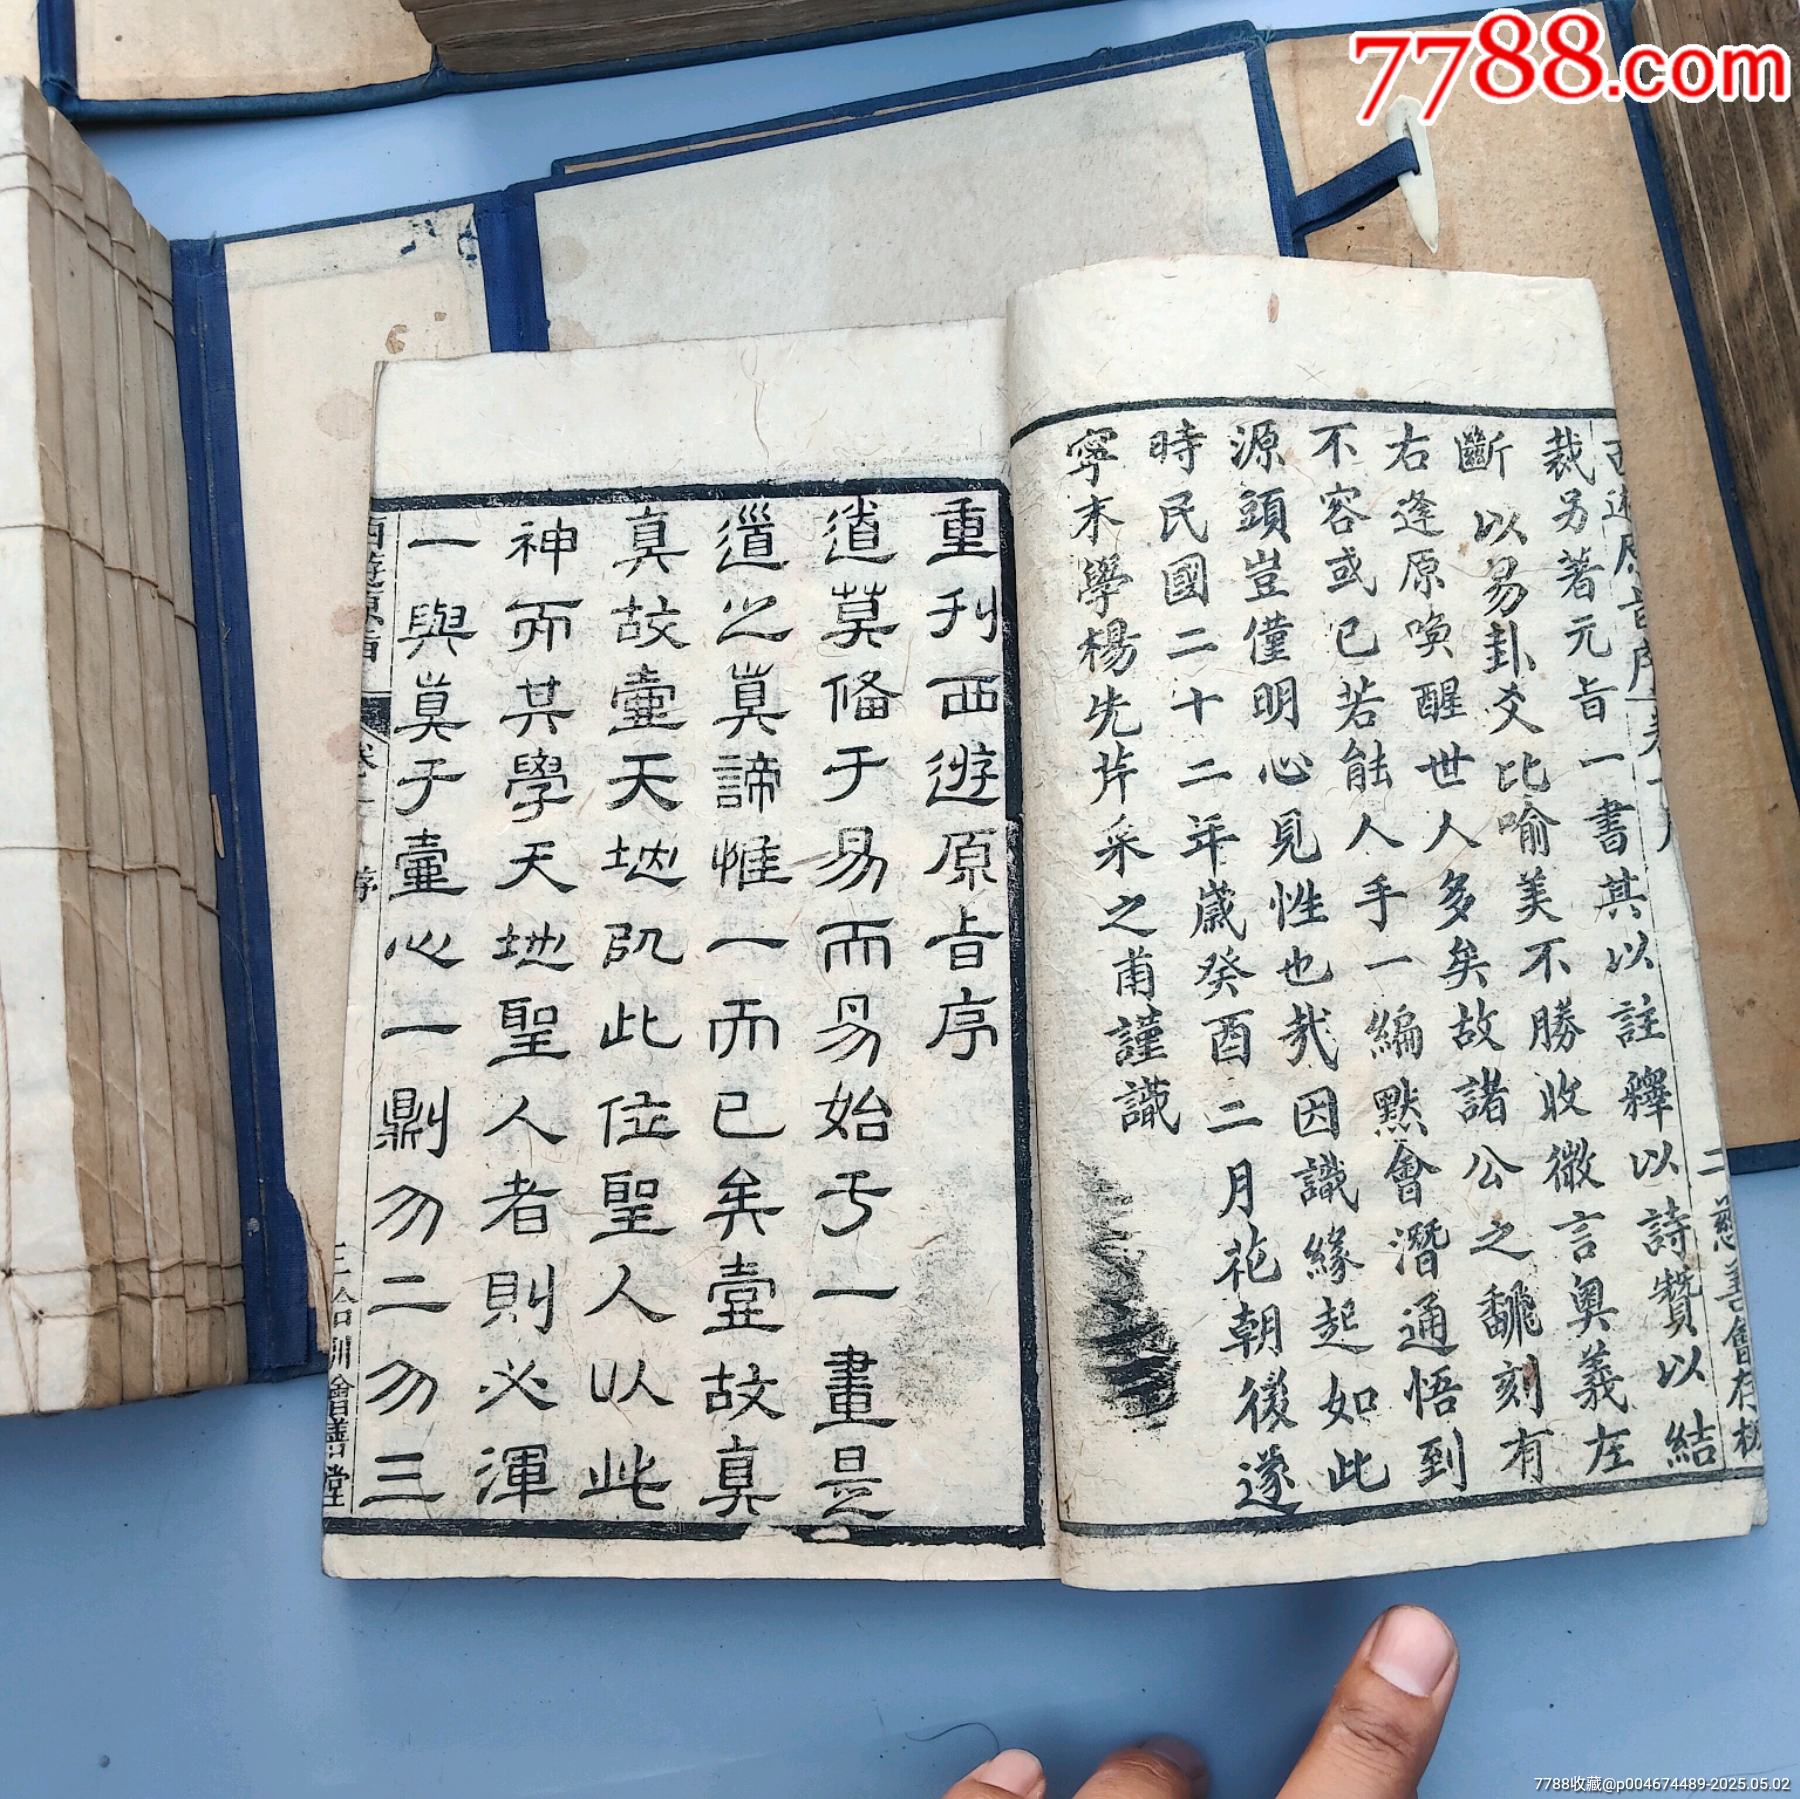 7788.com
裁另著元旨一書其以註釋以詩贊以結
斷以易卦爻比喻美不勝收微言奧義左
右逢原喚醒世人多矣故諸公之翻刻有
不容或已若能人手一編默會潛通悟到
源頭豈僅明心見性也哉因識緣起如此
時民國二十二年歲癸酉二月花朝後遂
寧末學楊先芹采之甫謹識
重刊西遊原旨序
道莫備于易而易始于一畫是
道之真諦惟一而已矣壹故真
真故壹天地以此位聖人以此
神而其學天地聖人者則必渾
一與真于壹心一則勿二勿三
7788收藏@p004674489-2025.05.02